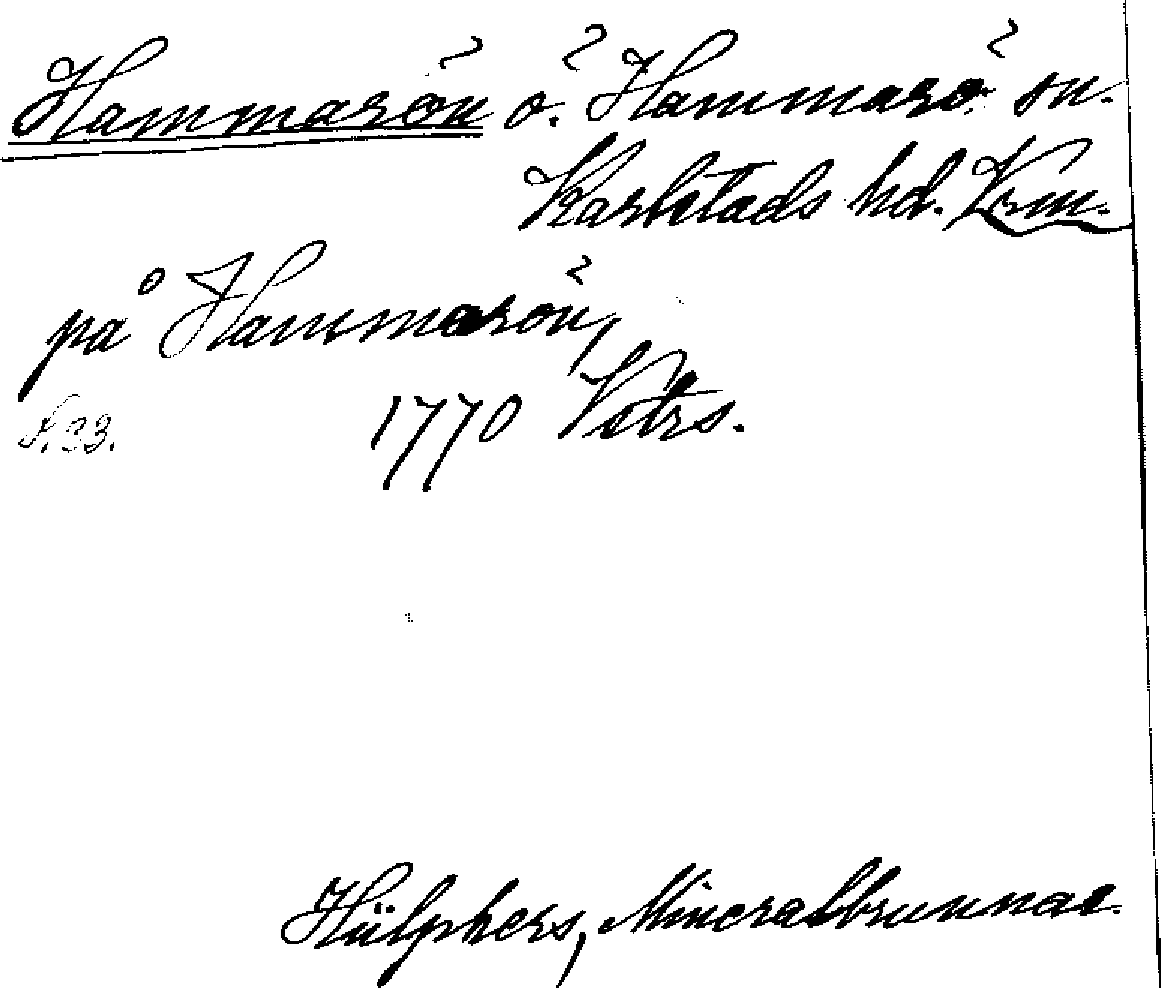 Hammarön ö. Hammarö sn.
Karlstads hd. Vrm.
på Hammarön,
1770 Vetrs.
s. 33.
Hülphers, Mineralbrunnar.